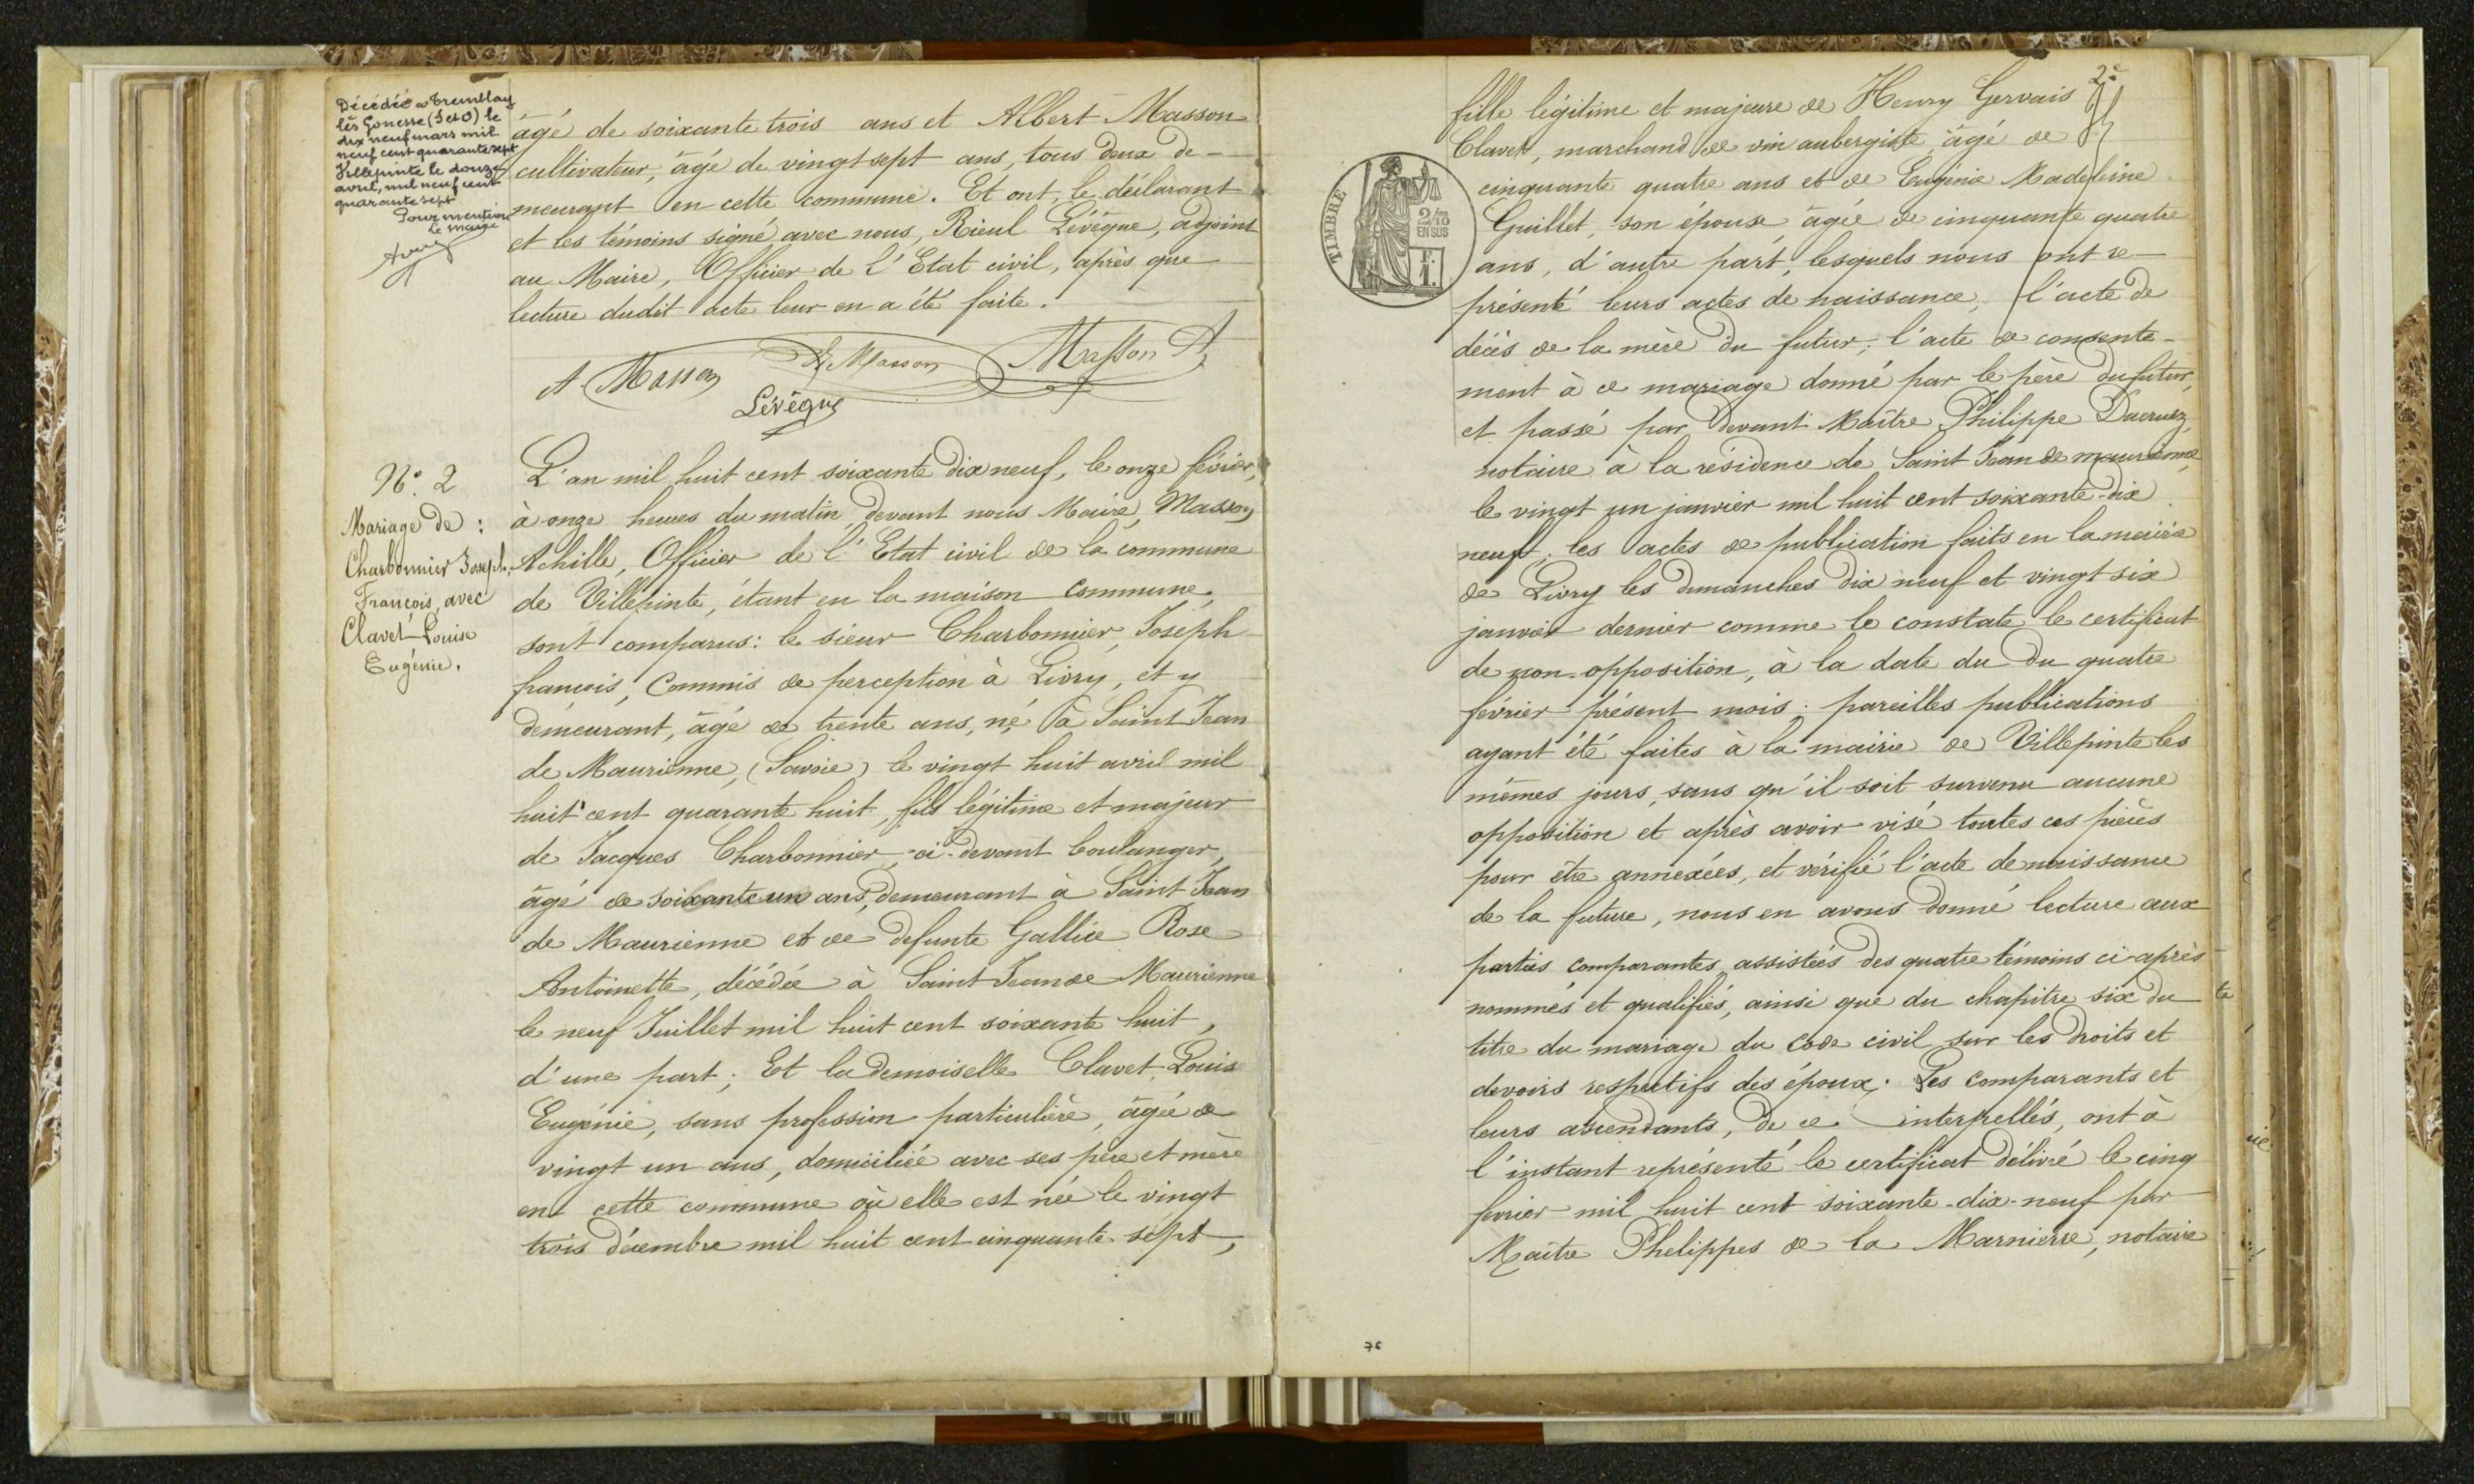 Décédée à Tremblay
lès Gonesse (S et O) le
dix neuf mars mil
neuf cent quarante sept
Villepinte le douze
avril, mil neuf cent
quarante sept
Pour mention
Le maire
âgé de soixante trois ans et Albert Masson
cultivateur, âgé de vingt sept ans, tous deux de-
meurant en cette commune. Et ont, le déclarant
et les témoins signé avec nous, Rieul Lévêque, adjoint
au Maire, Officier de l'Etat civil, après que
lecture dudit acte leur en a été faite.
A. Masson Masson Masson A
Lévêque
N° 2
Mariage de :
Charbonnier Joseph,
François, avec
Clavet Louise
Eugénie.
L'an mil huit cent soixante dix neuf, le onze février,
à onze heures du matin, devant nous Maire, Masson
Achille, Officier de l'Etat civil de la commune
de Villepinte, étant en la maison commune,
sont comparus: le sieur Charbonnier, Joseph
françois, Commis de perception à Livry, et y
demeurant, âgé de trente ans, né à Saint Jean
de Maurienne, (Savoie) le vingt huit avril mil
huit cent quarante huit, fils légitime et majeur
de Jacques Charbonnier, ci-devant boulanger,
âgé de soixante un ans, demeurant à Saint Jean
de Maurienne et de defunte Gallice Rose
Antoinette, décédée à Saint Jean de Maurienne
le neuf Juillet mil huit cent soixante huit,
d'une part; Et la demoiselle Clavet, Louis
Eugénie, sans profession particulière, âgée de
vingt un ans, domiciliée avec ses père et mère
en cette commune où elle est née le vingt
trois décembre mil huit cent cinquante sept,
2e
fille légitime et majeure de Henry Gervais
Clavet, marchand de vin aubergiste, âgé de
cinquante quatre ans et de Eugénie Madeleine
Guillet, son épouse âgée de cinquante quatre
ans, d'autre part, lesquels nous ont re-
présenté leurs actes de naissance, l'acte de
décès de la mère du futur; l'acte de consente-
ment à ce mariage donné par le père du futur,
et passé par devant Maître Philippe Ducruez,
notaire à la résidence de Saint Jean de maurienne,
le vingt un janvier mil huit cent soixante-dix
neuf; les actes de publication faits en la mairie
de Livry les dimanches dix neuf et vingt six
janvier dernier comme le constate le certificat
de non-opposition, à la date du du quatre
février présent mois; pareilles publications
ayant été faites à la mairie de Villepinte les
mêmes jours, sans qu'il soit survenu aucune
opposition et après avoir visé toutes ces pièces
pour être annexées, et vérifié l'acte de naissance
de la future, nous en avons donné lecture aux
parties comparantes, assistées des quatre témoins ci-après
nommés et qualifiés, ainsi que du chapitre six du
titre du mariage du code civil sur les droits et
devoirs respectifs des époux. Les comparants et
leurs ascendants, de ce interpellés, ont à
l'instant représenté le certificat délivré le cinq
février mil huit cent soixante-dix-neuf par
Maître Phelippes de la Marnierre, notaire
TIMBRE
2/10
EN SUS
F.
1.
76